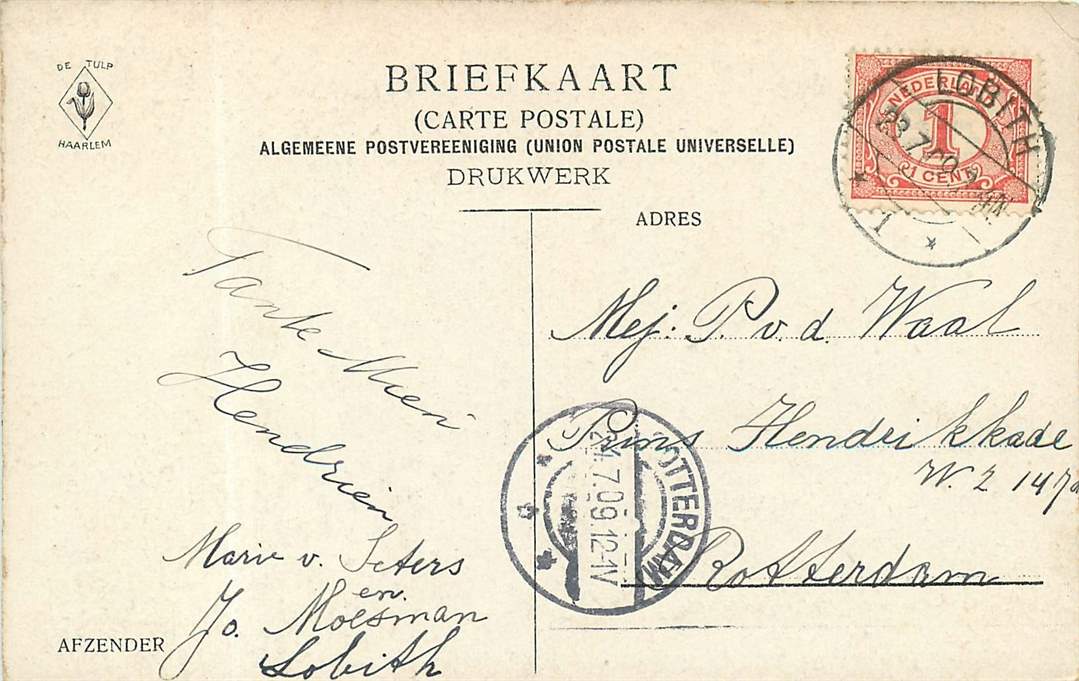 DE TULP
HAARLEM
BRIEFKAART
(CARTE POSTALE)
ALGEMEENE POSTVEREENIGING (UNION POSTALE UNIVERSELLE)
DRUKWERK
NEDERLAND
1
1 CENT
LOBITH
23.7.09
ADRES
Tante Mien
Hendrien
Marie v. Seters
en
Jo. Moesman
Lobith
AFZENDER
Mej: P. v. d. Waal
Prins Hendrikkade
W. 2 147a
Rotterdam
ROTTERDAM
24.7.09.12-1V